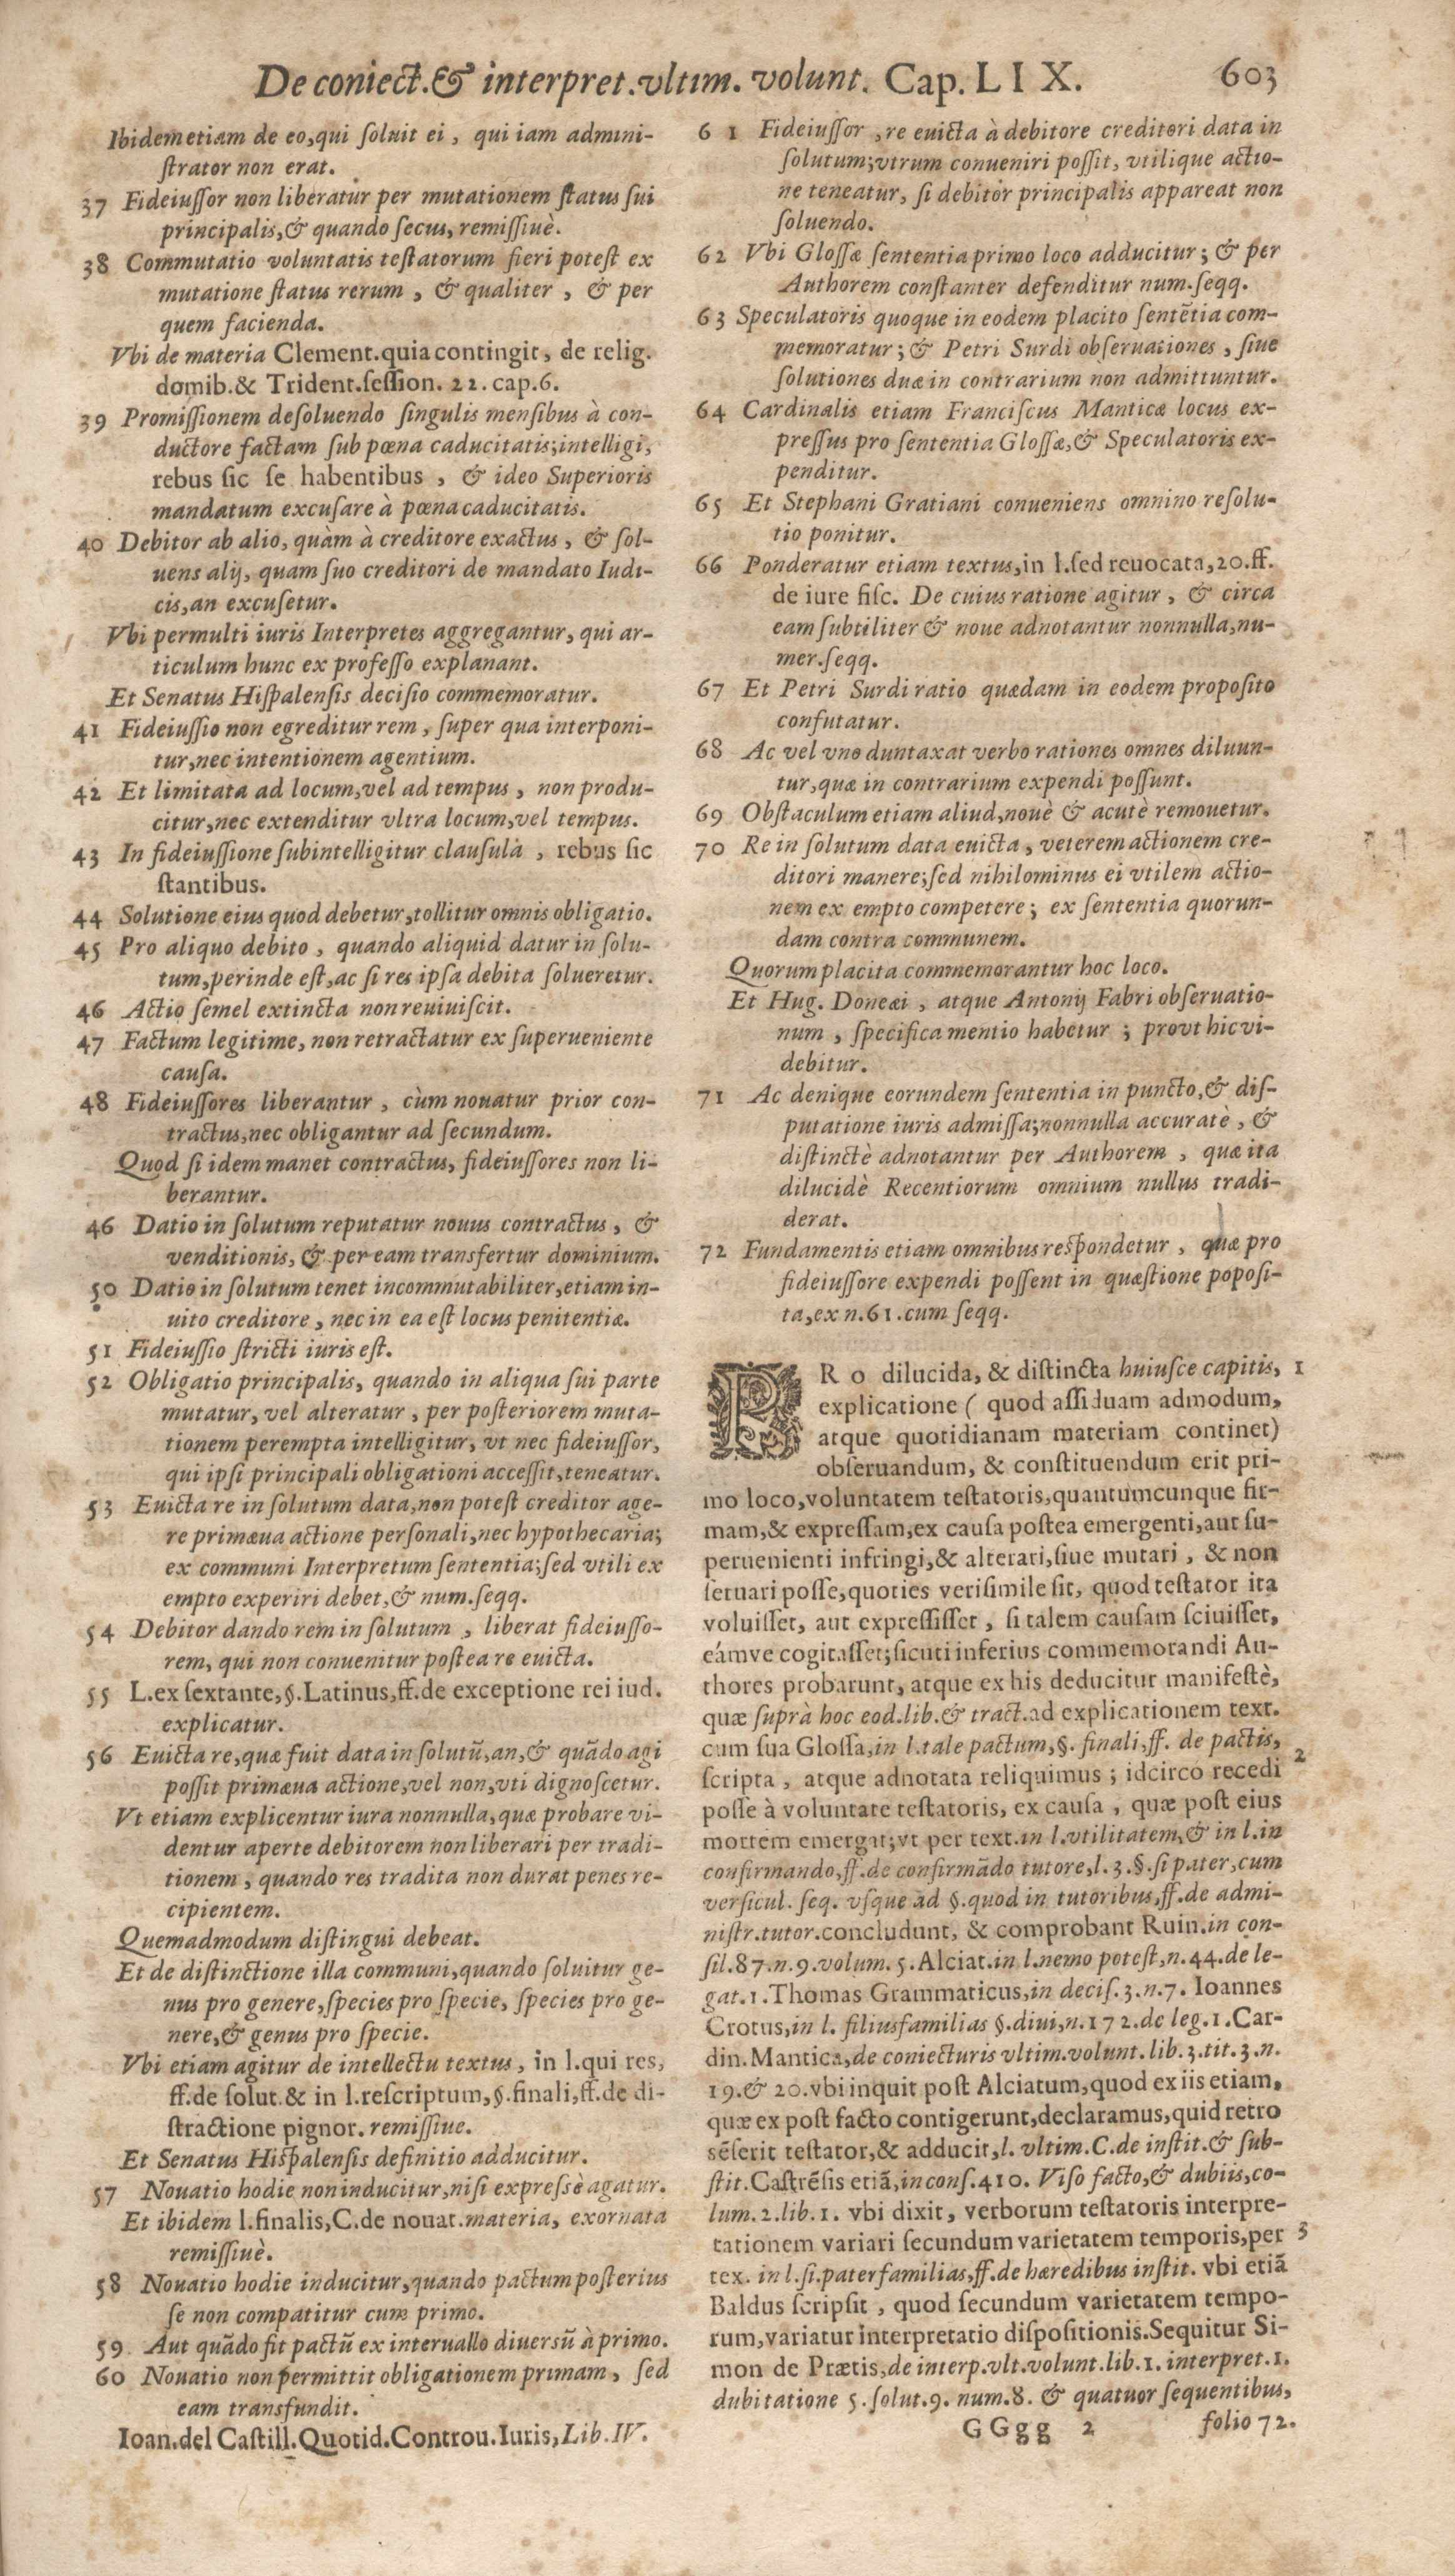 De coniect.& interpret.vltim. volunt. Cap. LIX. 603
Ibidem etiam de eo,qui soluit ei, qui iam admini-
strator non erat.
37 Fideiussor non liberatur per mutationem status sui
principalis,& quando secus, remissiuè.
38 Commutatio voluntatis testatorum fieri potest ex
mutatione status rerum, & qualiter, & per
quem facienda.
Vbi de materia Clement.quia contingit, de relig.
domib.& Trident.session. 22. cap.6.
39 Promissionem de soluendo singulis mensibus à con-
ductore factam sub pœna caducitatis;intelligi,
rebus sic se habentibus, & ideo Superioris
mandatum excusare à pœna caducitatis.
40 Debitor ab alio, quàm à creditore exactus, & sol-
uens alij, quam suo creditori de mandato Iudi-
cis,an excusetur.
Vbi permulti iuris Interpretes aggregantur, qui ar-
ticulum hunc ex professo explanant.
Et Senatus Hispalensis decisio commemoratur.
41 Fideiussio non egreditur rem, super qua interponi-
tur,nec intentionem agentium.
42 Et limitata ad locum,vel ad tempus, non produ-
citur,nec extenditur vltra locum,vel tempus.
43 In fideiussione subintelligitur clausula, rebus sic
stantibus.
44 Solutione eius quod debetur,tollitur omnis obligatio.
45 Pro aliquo debito, quando aliquid datur in solu-
tum,perinde est,ac si res ipsa debita solueretur.
46 Actio semel extincta non reuiuiscit.
47 Factum legitime, non retractatur ex superueniente
causa.
48 Fideiussores liberantur, cùm nouatur prior con-
tractus,nec obligantur ad secundum.
Quod si idem manet contractus, fideiussores non li-
berantur.
46 Datio in solutum reputatur nouus contractus, &
venditionis, & per eam transfertur dominium.
50 Datio in solutum tenet incommutabiliter,etiam in-
uito creditore, nec in ea est locus penitentiæ.
51 Fideiussio stricti iuris est.
52 Obligatio principalis, quando in aliqua sui parte
mutatur, vel alteratur, per posteriorem muta-
tionem perempta intelligitur, vt nec fideiussor,
qui ipsi principali obligationi accessit,teneatur.
53 Euicta re in solutum data,non potest creditor age-
re primæua actione personali,nec hypothecaria;
ex communi Interpretum sententia;sed vtili ex
empto experiri debet,& num.seqq.
54 Debitor dando rem in solutum, liberat fideiusso-
rem, qui non conuenitur postea re euicta.
55 L.ex sextante,§.Latinus,ff.de exceptione rei iud.
explicatur.
56 Euicta re,quæ fuit data in solutũ,an,& quãdo agi
possit primæua actione,vel non,vti dignoscetur.
Vt etiam explicentur iura nonnulla,quæ probare vi-
dentur aperte debitorem non liberari per tradi-
tionem, quando res tradita non durat penes re-
cipientem.
Quemadmodum distingui debeat.
Et de distinctione illa communi,quando soluitur ge-
nus pro genere,species pro specie, species pro ge-
nere,& genus pro specie.
Vbi etiam agitur de intellectu textus, in l.qui res,
ff.de solut.& in l.rescriptum,§.finali,ff.de di-
stractione pignor. remissiue.
Et Senatus Hispalensis definitio adducitur.
57 Nouatio hodie non inducitur,nisi expressè agatur.
Et ibidem l.finalis,C.de nouat.materia, exornata
remissiuè.
58 Nouatio hodie inducitur,quando pactum posterius
se non compatitur cum primo.
59 Aut quãdo fit pactũ ex interuallo diuersũ à primo.
60 Nouatio non permittit obligationem primam, sed
eam transfundit.
Ioan.del Castill.Quotid.Controu.Iuris,Lib.IV.
61 Fideiussor, re euicta à debitore creditori data in
solutum;vtrum conueniri possit, vtilique actio-
ne teneatur, si debitor principalis appareat non
soluendo.
62 Vbi Glossæ sententia primo loco adducitur; & per
Authorem constanter defenditur num.seqq.
63 Speculatoris quoque in eodem placito sentẽtia com-
memoratur; & Petri Surdi obseruationes, siue
solutiones duæ in contrarium non admittuntur.
64 Cardinalis etiam Franciscus Manticæ locus ex-
pressus pro sententia Glossæ,& Speculatoris ex-
penditur.
65 Et Stephani Gratiani conueniens omnino resolu-
tio ponitur.
66 Ponderatur etiam textus,in l.sed reuocata,20.ff.
de iure fisc. De cuius ratione agitur, & circa
eam subtiliter & noue adnotantur nonnulla,nu-
mer.seqq.
67 Et Petri Surdi ratio quædam in eodem proposito
confutatur.
68 Ac vel vno duntaxat verbo rationes omnes diluun-
tur,quæ in contrarium expendi possunt.
69 Obstaculum etiam aliud,nouè & acutè remouetur.
70 Re in solutum data euicta, veterem actionem cre-
ditori manere;sed nihilominus ei vtilem actio-
nem ex empto competere; ex sententia quorun-
dam contra communem.
Quorum placita commemorantur hoc loco.
Et Hug. Doneæi, atque Antonij Fabri obseruatio-
num, specifica mentio habetur; provt hic vi-
debitur.
71 Ac denique eorundem sententia in puncto,& dis-
putatione iuris admissa;nonnulla accuratè, &
distinctè adnotantur per Authorem, quæ ita
dilucidè Recentiorum omnium nullus tradi-
derat.
72 Fundamentis etiam omnibus respondetur, quæ pro
fideiussore expendi possent in quæstione poposi-
ta,ex n.61.cum seqq.
PRo dilucida, & distincta huiusce capitis, 1
explicatione ( quod assiduam admodum,
atque quotidianam materiam continet)
obseruandum, & constituendum erit pri-
mo loco,voluntatem testatoris,quantumcunque fir-
mam,& expressam,ex causa postea emergenti,aut su-
peruenienti infringi,& alterari,siue mutari, & non
seruari posse;quoties verisimile sit, quod testator ita
voluisset, aut expressisset, si talem causam sciuisset,
eámve cogitasset;sicuti inferius commemorandi Au-
thores probarunt, atque ex his deducitur manifestè,
quæ suprà hoc eod.lib.& tract.ad explicationem text.
cum sua Glossa,in l.tale pactum,§. finali,ff. de pactis,
scripta, atque adnotata reliquimus; idcirco recedi 2
posse à voluntate testatoris, ex causa, quæ post eius
mortem emergat;vt per text.in l.vtilitatem,& in l.in
confirmando,ff.de confirmãdo tutore,l.3.§.si pater,cum
versicul. seq. vsque ad §.quod in tutoribus,ff.de admi-
nistr.tutor.concludunt, & comprobant Ruin.in con-
sil.87.n.9.volum. 5.Alciat.in l.nemo potest,n.44.de le-
gat.1.Thomas Grammaticus,in decis.3.n.7. Ioannes
Crotus,in l. filiusfamilias §.diui,n.172.de leg.1.Car-
din.Mantica,de coniecturis vltim.volunt. lib.3.tit.3.n.
19.& 20.vbi inquit post Alciatum,quod ex iis etiam,
quæ ex post facto contigerunt,declaramus,quid retro
sẽserit testator,& adducit,l. vltim.C.de instit.& sub-
stit.Castrẽsis etiã,in cons.410. Viso facto,& dubiis,co-
lum.2.lib.1. vbi dixit, verborum testatoris interpre-
tationem variari secundum varietatem temporis,per 3
tex. in l.si.paterfamilias,ff.de hæredibus instit. vbi etiã
Baldus scripsit, quod secundum varietatem tempo-
rum,variatur interpretatio dispositionis.Sequitur Si-
mon de Prætis,de interp.vlt.volunt.lib.1. interpret.1.
dubitatione 5.solut.9. num.8. & quatuor sequentibus,
GGgg 2 folio 72.